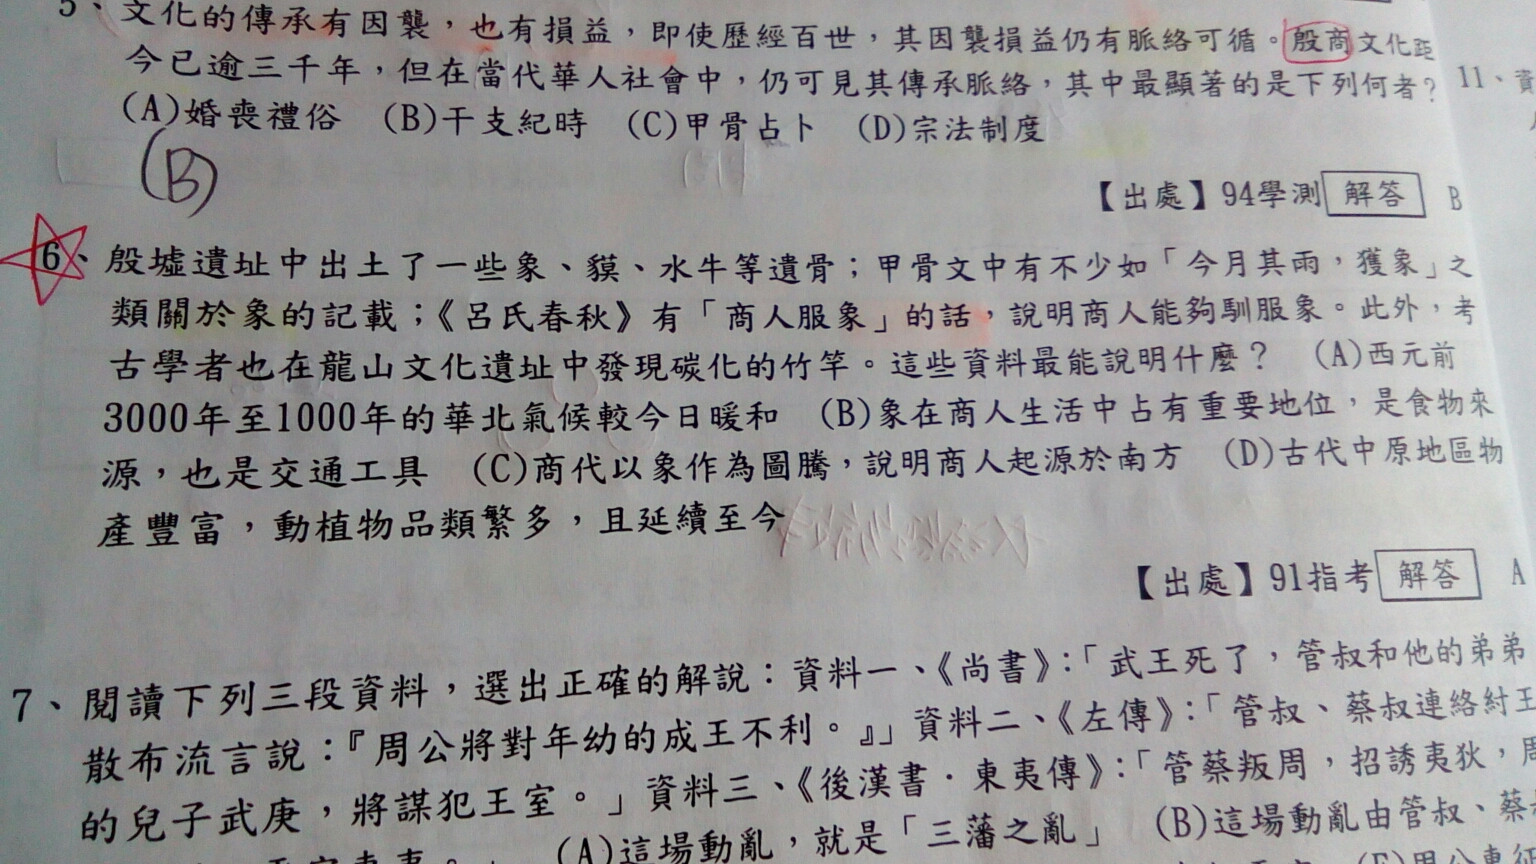 5、文化的傳承有因襲，也有損益，即使歷經百世，其因襲損益仍有脈絡可循。殷商文化距
今已逾三千年，但在當代華人社會中，仍可見其傳承脈絡，其中最顯著的是下列何者？
(A)婚喪禮俗 (B)干支紀時 (C)甲骨占卜 (D)宗法制度
(B)
【出處】94學測 解答 B
11、資
6、殷墟遺址中出土了一些象、貘、水牛等遺骨；甲骨文中有不少如「今月其雨，獲象」之
類關於象的記載；《呂氏春秋》有「商人服象」的話，說明商人能夠馴服象。此外，考
古學者也在龍山文化遺址中發現碳化的竹竿。這些資料最能說明什麼？ (A)西元前
3000年至1000年的華北氣候較今日暖和 (B)象在商人生活中占有重要地位，是食物來
源，也是交通工具 (C)商代以象作為圖騰，說明商人起源於南方 (D)古代中原地區物
產豐富，動植物品類繁多，且延續至今
【出處】91指考 解答 A
7、閱讀下列三段資料，選出正確的解說：資料一、《尚書》：「武王死了，管叔和他的弟弟
散布流言說：『周公將對年幼的成王不利。』」資料二、《左傳》：「管叔、蔡叔連絡紂王
的兒子武庚，將謀犯王室。」資料三、《後漢書．東夷傳》：「管蔡叛周，招誘夷狄，周
(A)這場動亂，就是「三藩之亂」 (B)這場動亂由管叔、蔡